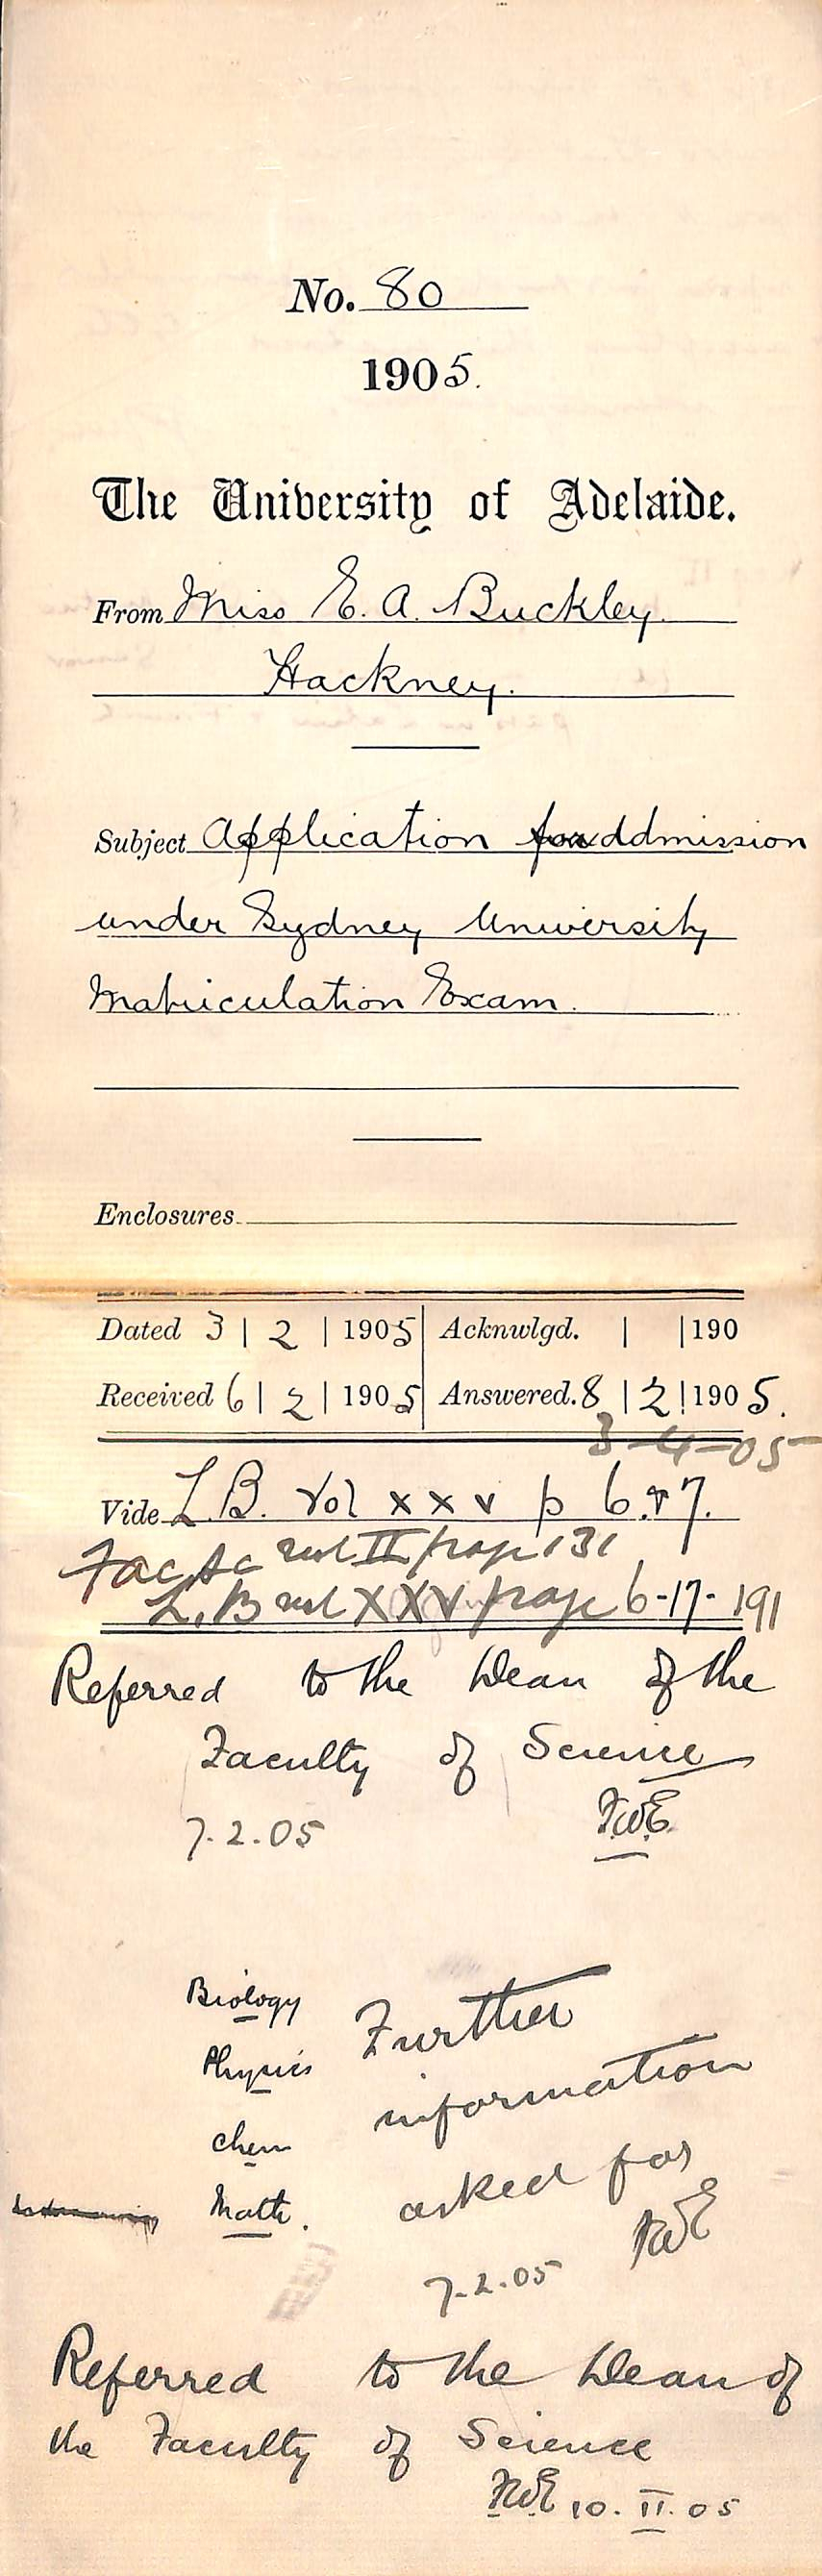 No. 80
1905.
The University of Adelaide.
From Miss E. A. Buckley
Hackney.
Subject Application for addmission
under Sydney University
Matriculation Exam.
Enclosures
Dated 3 | 2 | 1905 Acknwlgd. | | 190
Received 6 | 2 | 1905 Answered. 8 | 2 | 1905.
3-4-05
Vide L.B. Vol XXV p 6. & 7.
Fac Sc vol II page 131
L. B vol XXV page 6-17-191
Referred to the Dean of the
Faculty of Science
7.2.05
Biology
Physics
Chem
Math.
Further
information
asked for
7.2.05
Referred to the Dean of
the Faculty of Science
10. II. 05